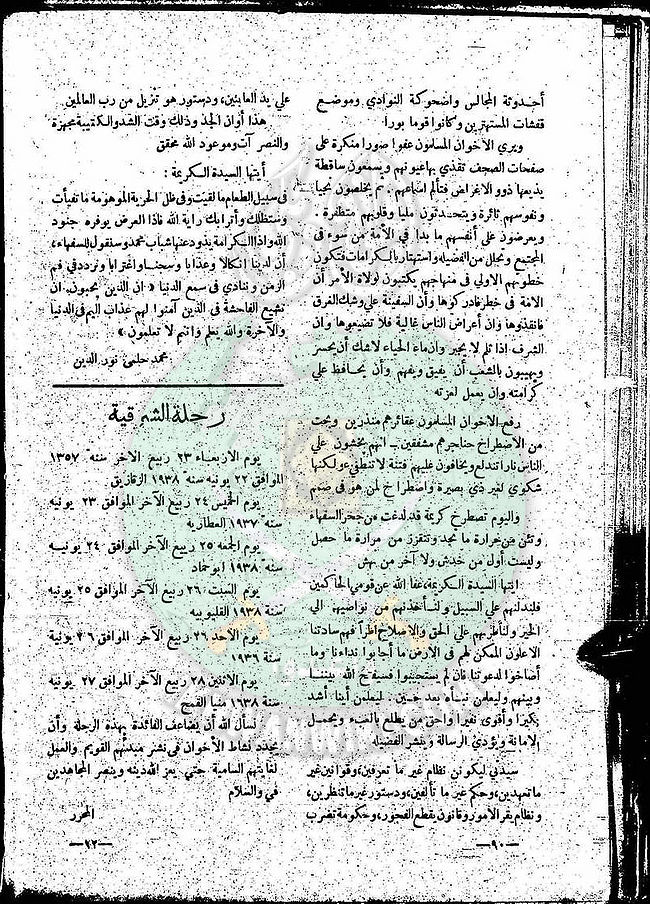 أحدوثة المجالس واضحوكة النوادي وموضع
قفشات المستهترين وكانوا قوما بورا
ويري الأخوان المسلمون عفوا صورا منكرة على
صفحات الصحف تقذي بها عيونهم ويسمعون ساقطة
يذيعها ذوو الاغراض فتألم اسماعهم . ثم يخلصون نجيا
ونفوسهم ثائرة ويتحدثون مليا وقلوبهم متفطرة .
ويعرضون على أنفسهم ما بدا في الأمة من سوء فى
المجتمع وتحلل من الفضيلة واستهتار بالكرامات فتكون
خطوتهم الاولي فى منهاجهم يكتبون لولاة الأمر أن
الامة فى خطر فادركوها وأن السفينة علي وشك الغرق
فانقذوها وان أعراض الناس غالية فلا تضيعوها وان
الشرف اذا ثلم لا يجبر وان ماء الحياء لاشك أن يحسر
ويهيبون بالشعب أن يفيق ويفهم وأن يحافظ علي
كرامته وان يعمل لعزته
رفع الأخوان المسلمون عقائرهم منذرين وبحت
من الاصطراخ حناجرهم مشفقين . انهم يخشون علي
الناس نارا تندلع ويخافون عليهم فتنة لا تنطفي ءولكنها
شكوي لغير ذي بصيرة واصطراخ لمن هو فى صمم
واليوم تصطرخ كريمة قد لدغت من جحر السفهاء
وتئن من حرارة ما تجد وتتقزز من مرارة ما حصل
وليست أول من خدش ولا آخر من بهش
ايتها السيدة الكريمة، عفا الله عن قومي الحاكمين
فليدلنهم علي السبيل ولنأخذنهم من نواصيهم الي
الخير ولنأطرنهم علي الحق والاصلاح اطرا فهم سادتنا
الاعلون الممكن لهم فى الارض ما أجابوا نداءنا وما
أصاخوا لدعوتنا فان لم يستجيبوا فسيفتح الله بيننا
وبينهم وليعلمن نبأه بعد حين . ليعلمن أينا أشد
نكيرا وأقوى نفيرا واحق من يطلع بالعبء ويحمل
الامانة ويؤدي الرسالة وينشر الفضيلة
سيدتي ليكونن نظام غير ما تعرفين، وقوانين غير
ما تعهدين، وحكم غير ما تألفين، ودستور غير ما تنظرين،
ونظام يقر الأمور وقانون يقطع الفجور، وحكومة تضرب
—٩٠—
علي يد العابثين، ودستور هو تنزيل من رب العالمين
هذا أوان الجد وذلك وقت الشد والكتيبة مجهزة
والنصر آت وموعود الله محقق
أيتها السيدة الكريمة :
فى سبيل الطعام ما لقيت وفى ظل الحرية الموهومة ما تفيأت
وستظلك وأترابك راية الله فاذا العرض يوفره جنود
الله واذا الكرامة يذود عنها شباب محمد وسنقول للسفهاء،
أن لدينا انكالا وعذابا وسجنا واغترابا ونردد في فم
الزمن وننادي فى سمع الدنيا « ان الذين يحبون ان
تشيع الفاحشة في الذين آمنوا لهم عذاب اليم فى الدنيا
والآخرة والله يعلم وانتم لا تعلمون »
محمد حلمى نور الدين
رحلة الشرقية
يوم الاربعاء ٢٣ ربيع الآخر سنة ١٣٥٧
الموافق ٢٢ يونيه سنة ١٩٣٨ الزقازيق
يوم الخميس ٢٤ ربيع الآخر الموافق ٢٣ يونيه
سنة ١٩٣٧ العطارية
يوم الجمعه ٢٥ ربيع الآخر الموافق ٢٤ يونيه
سنه ١٩٣٨ ابو حماد
يوم السبت ٢٦ ربيع الآخر الموافق ٢٥ يونيه
سنة ١٩٣٨ القليوبيه
يوم الأحد ٢٦ ربيع الآخر الموافق ٢٦ يونية
سنة ١٩٣٦
يوم الاثنين ٢٨ ربيع الآخر الموافق ٢٧ يونيه
سنة ١٩٣٨ منيا القمح
نسأل الله أن يضاعف الفائدة بهذه الرحلة وأن
يجدد نشاط الأخوان في نشر مبدئهم القويم والعمل
لغايتهم السامية حتي يعز الله دينه وينصر المجاهدين
في والسلام
المحرر
—٩٢—